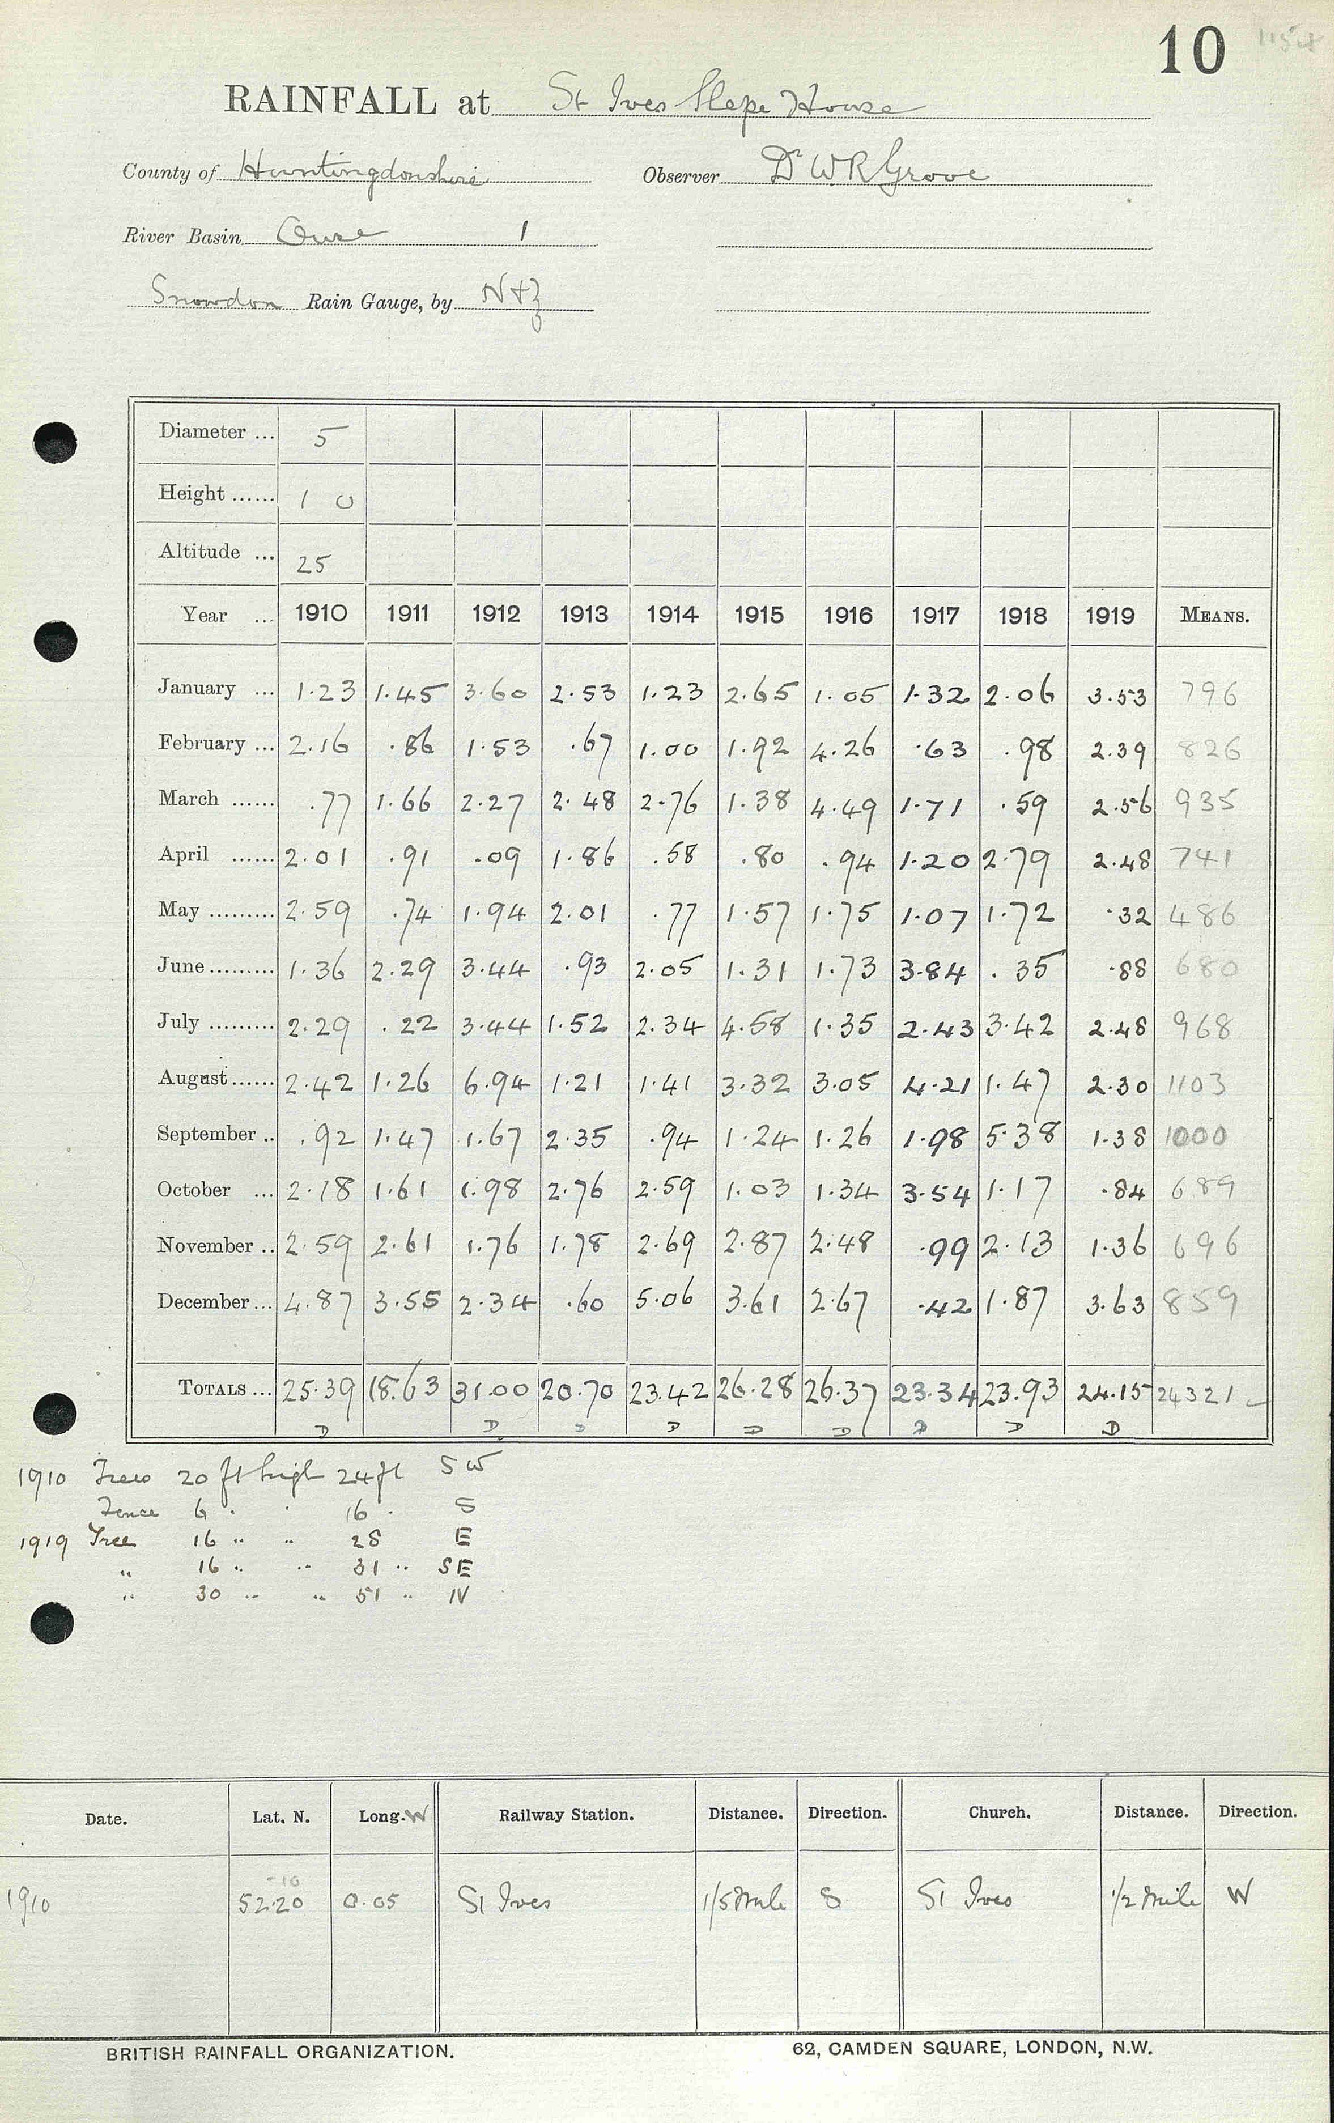 10
RAINFALL at St Ives Slepe House
County of Huntingdonshire Observer Dr W R Grove
River Basin Ouse 1
Snowdon Rain Gauge, by N+Z
Diameter ... 5
Height ...... 1 0
Altitude ... 25
Year ... 1910 1911 1912 1913 1914 1915 1916 1917 1918 1919 MEANS.
January ... 1.23 1.45 3.60 2.53 1.23 2.65 1.05 1.32 2.06 3.53 796
February ... 2.16 .86 1.53 .67 1.00 1.92 4.26 .63 .98 2.39 826
March ...... .77 1.66 2.27 2.48 2.76 1.38 4.49 1.71 .59 2.56 935
April ...... 2.01 .91 .09 1.86 .58 .80 .94 1.20 2.79 2.48 741
May ......... 2.59 .74 1.94 2.01 .77 1.57 1.75 1.07 1.72 .32 486
June ......... 1.36 2.29 3.44 .93 2.05 1.31 1.73 3.84 .35 .88 680
July ......... 2.29 .22 3.44 1.52 2.34 4.58 1.35 2.43 3.42 2.48 968
August ...... 2.42 1.26 6.94 1.21 1.41 3.32 3.05 4.21 1.47 2.30 1103
September .. .92 1.47 1.67 2.35 .94 1.24 1.26 1.98 5.38 1.38 1000
October ... 2.18 1.61 1.98 2.76 2.59 1.03 1.34 3.54 1.17 .84 689
November .. 2.59 2.61 1.76 1.78 2.69 2.87 2.48 .99 2.13 1.36 696
December ... 4.87 3.55 2.34 .60 5.06 3.61 2.67 .42 1.87 3.63 859
TOTALS ... 25.39 18.63 31.00 20.70 23.42 26.28 26.37 23.34 23.93 24.15 24321
D D D D D D D D D
1910 Trees 20 ft high 24 ft SW
Fence 6 " 16 " S
1919 Tree 16 " " 28 E
" 16 " " 31 " SE
" 30 " " 51 " N
Date. Lat. N. Long. W Railway Station. Distance. Direction. Church. Distance. Direction.
1910 52.20 0.05 St Ives 1/5 Mile S St Ives 1/2 Mile W
BRITISH RAINFALL ORGANIZATION. 62, CAMDEN SQUARE, LONDON, N.W.